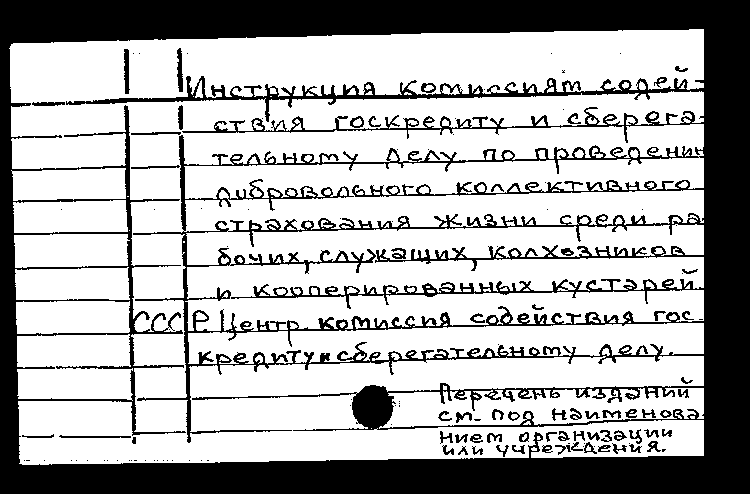 Инструкция комиссиям содей-
ствия госкредиту и сберега-
тельному делу по проведению
дибровольного коллективного
страхования жизни среди ра-
бочих, служащих, колхозников
и кооперированных кустарей.
СССР. Центр. комиссия содействия гос-
кредиту и сберегательному делу.
Перечень изданий
см. под наименова-
нием организации
или учреждения.